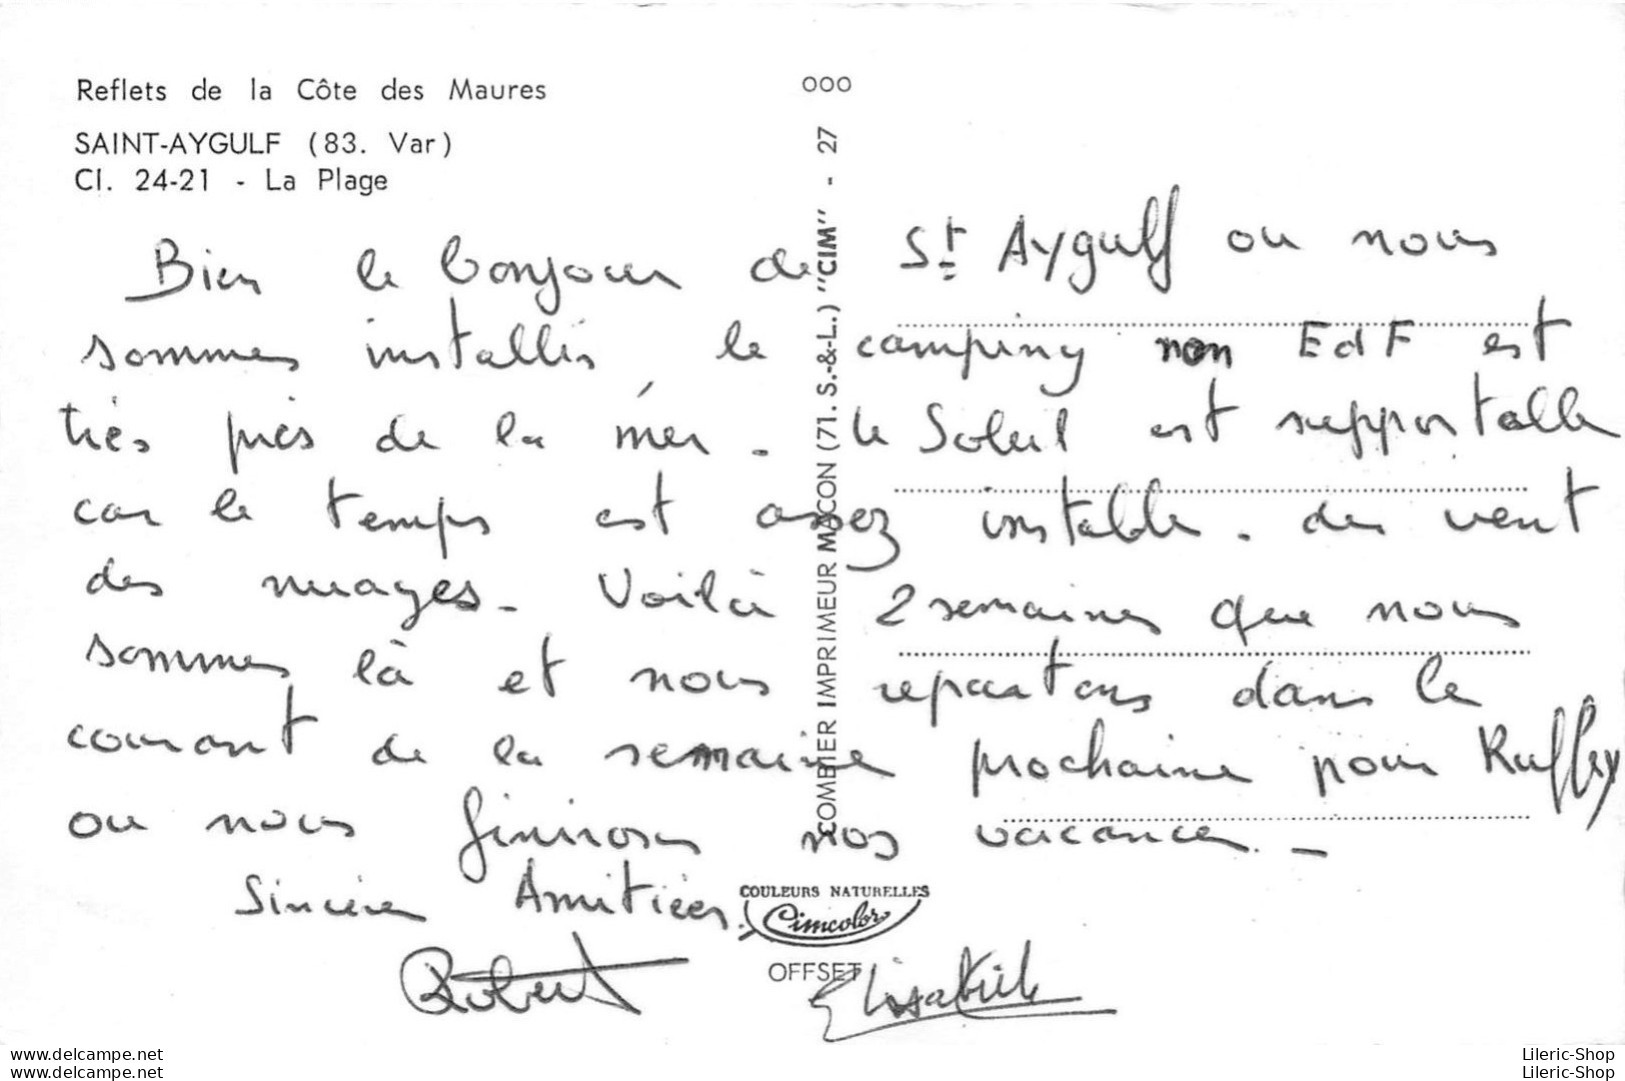 Reflets de la Côte des Maures
SAINT-AYGULF (83. Var)
Cl. 24-21 - La Plage
000
COMBIER IMPRIMEUR MACON (71. S.-&-L.) "CIM" - 27
Bien le bonjour de St Aygulf ou nous
sommes installés le camping non EdF est
très près de la mer. le Soleil est supportable
car le temps est assez instable. du vent
des nuages. Voilà 2 semaines que nous
sommes là et nous repartons dans le
courant de la semaine prochaine pour Ruffey
ou nous finirons nos vacances. _
Sincères Amitiés.
COULEURS NATURELLES
Cimcolor
OFFSET
Robert Elisabeth
www.delcampe.net
www.delcampe.net
Lileric-Shop
Lileric-Shop